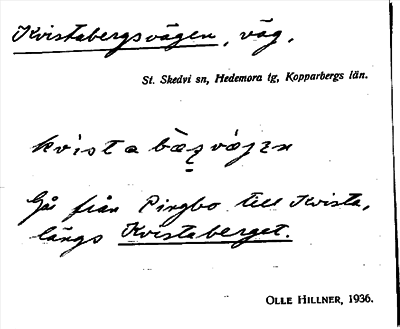 Kvistabergsvägen, väg,
St. Skedvi sn, Hedemora tg, Kopparbergs län.
kvista bæşvägεn
Går från Pingbo till Kvista,
längs Kvistaberget.
OLLE HILLNER, 1936.